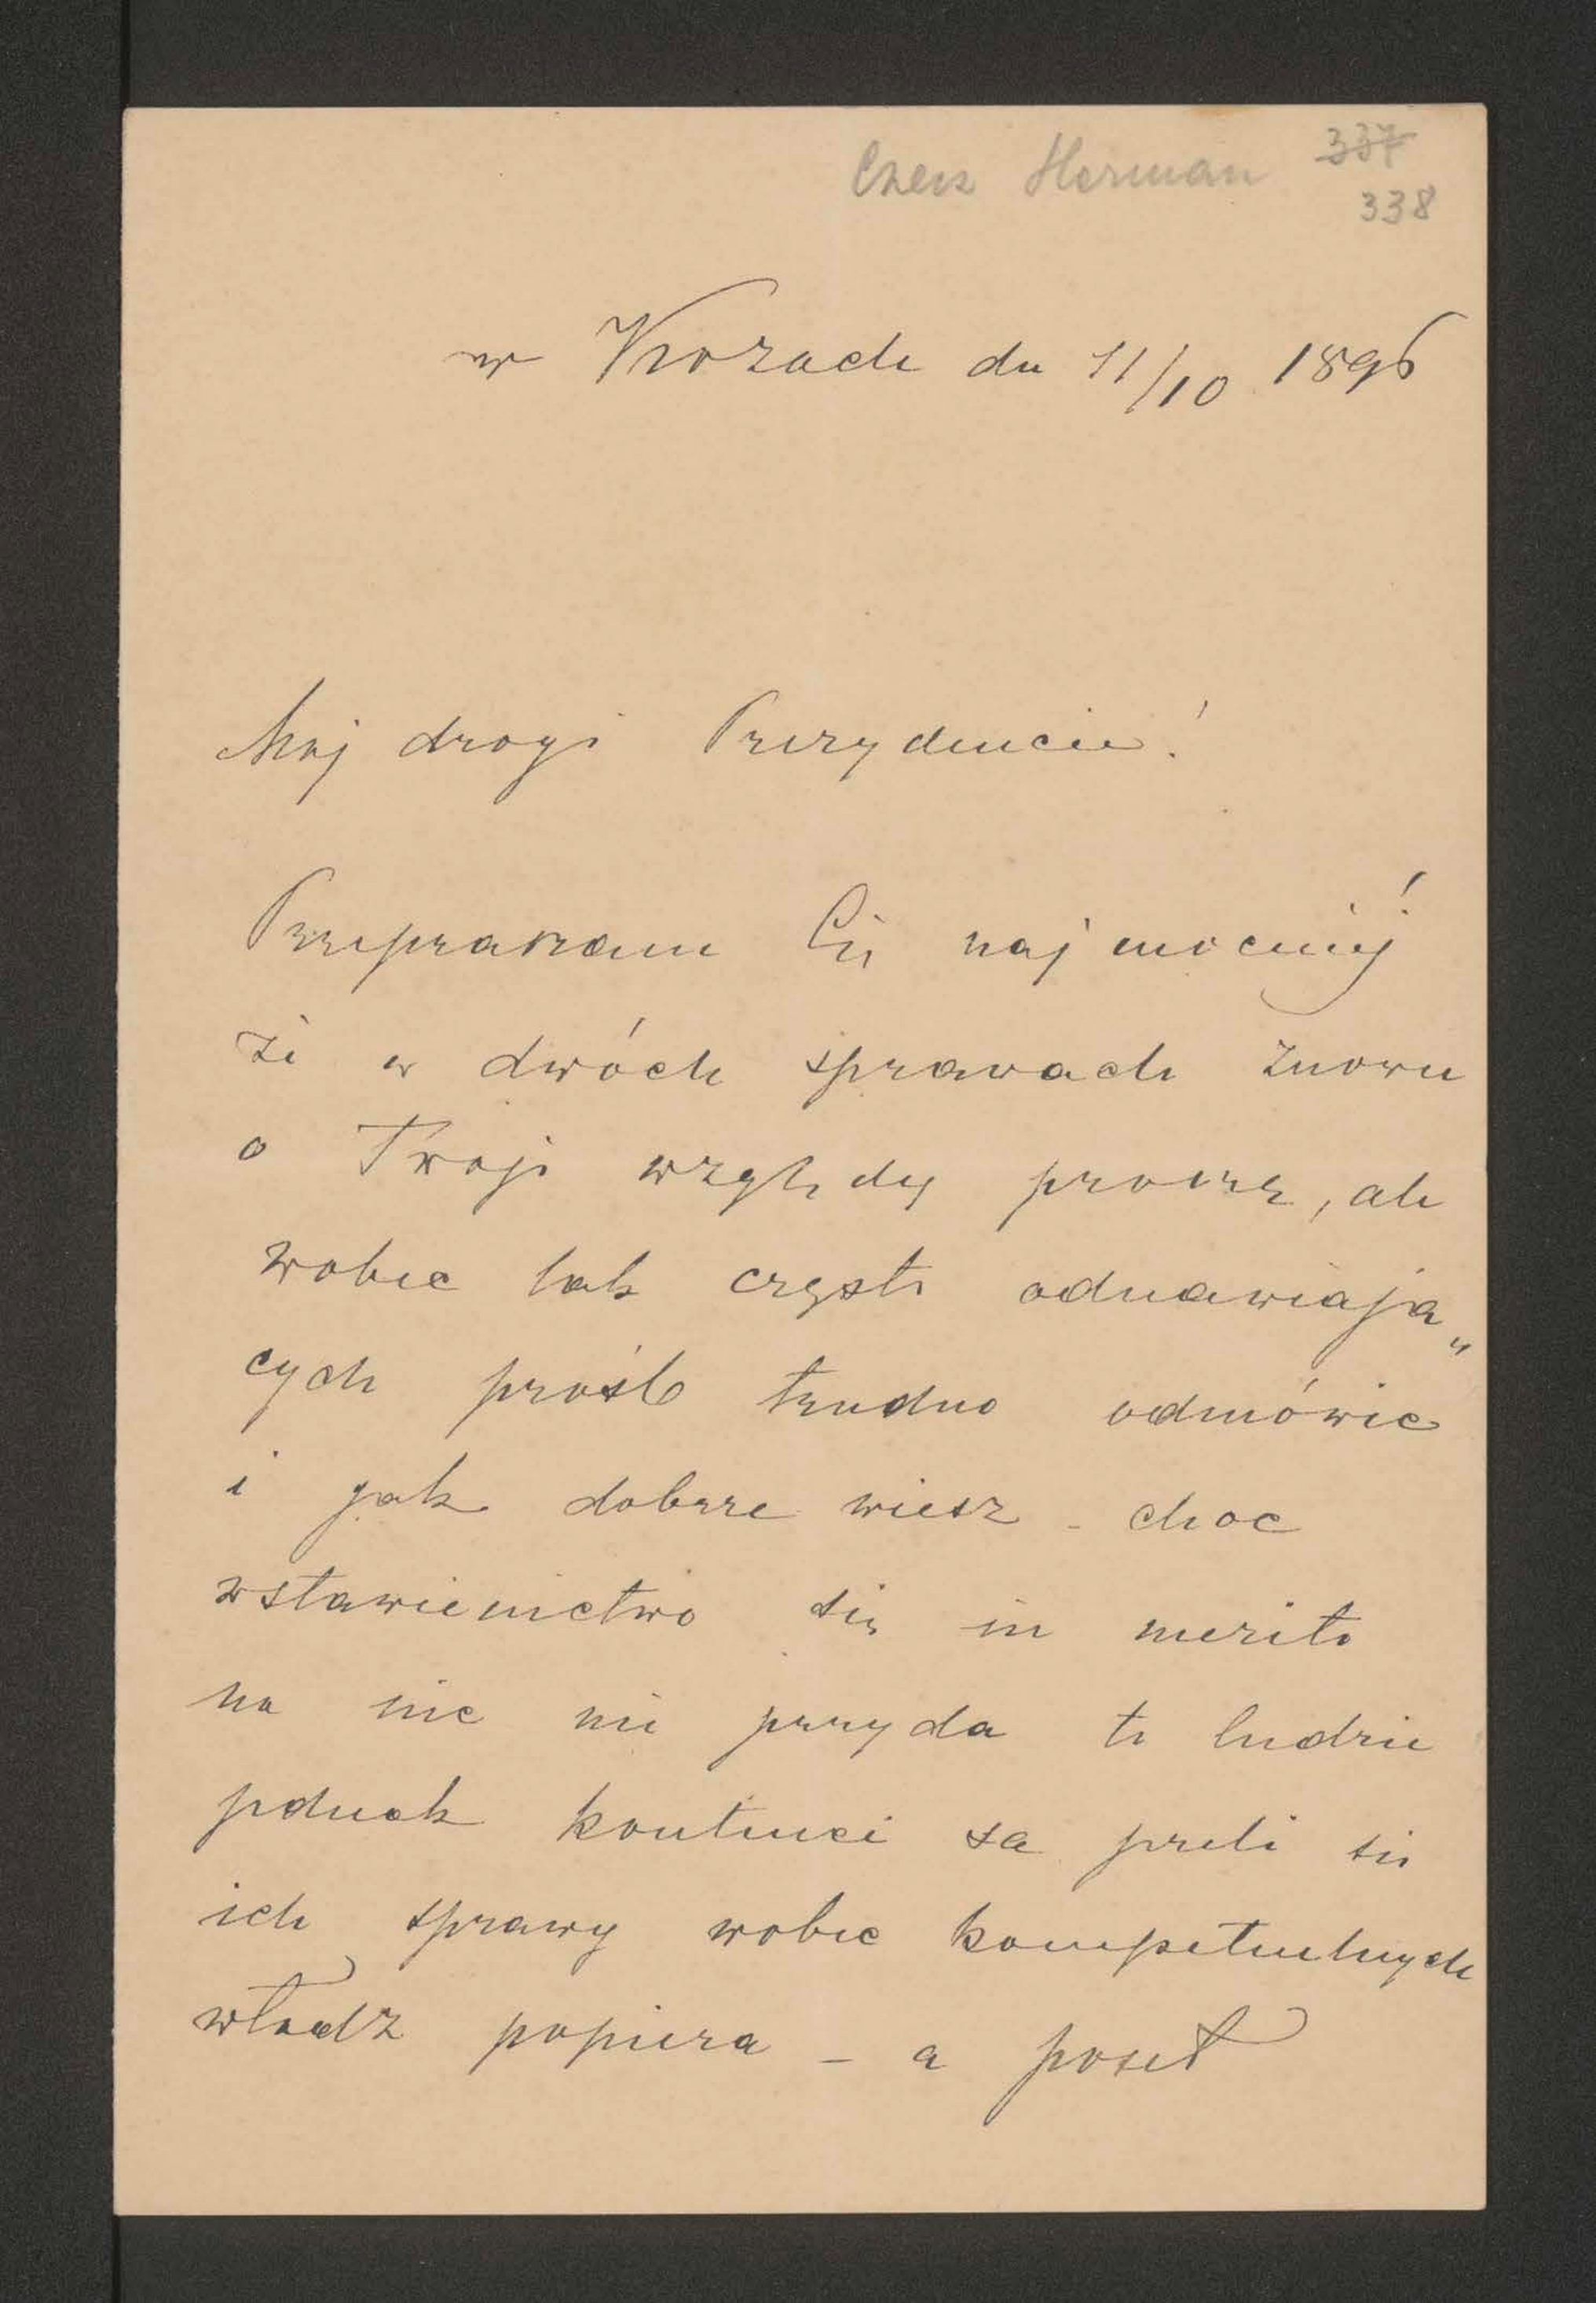 Czecz Herman 337
338
w Kozach dn 11/10 1896
Mój drogi Prezydencie!
Przepraszam Cię najmocniej!
że w dwóch sprawach znowu
o Twoje względy proszę, ale
wobec tak często odnawiają„
cych prośb trudno odmówić
i jak dobrze wiesz - choc
wstawienictwo się in merito
na nic nie przyda to ludzie
jednak kontenci są jeżeli się
ich sprawy wobec kompetentnych
władz popiera - a poseł